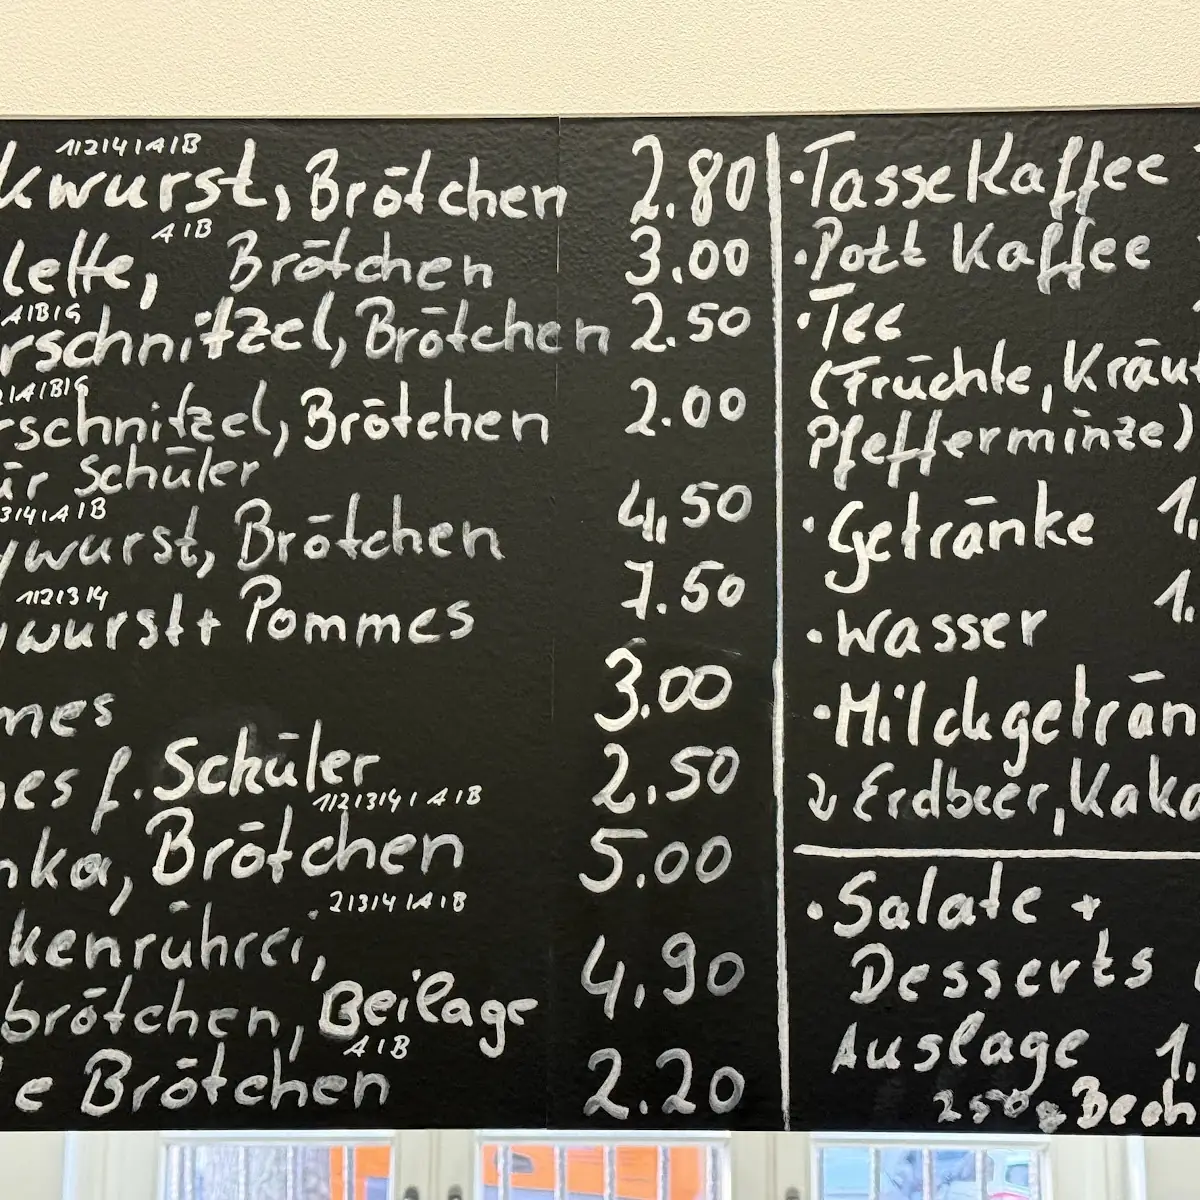 1/2/4/A/B
kwurst, Brötchen 2.80
A/B
lette, Brötchen 3.00
A/B/G
rschnitzel, Brötchen 2.50
/A/B/G
rschnitzel, Brötchen 2.00
ür Schüler
3/4/A/B
ywurst, Brötchen 4,50
1/2/3/4
ywurst+ Pommes 7.50
mes 3.00
mes f. Schüler 2,50
1/2/3/4/A/B
nka, Brötchen 5.00
2/3/4/A/B
kenrührei, 4,90
brötchen, Beilage
A/B
e Brötchen 2.20
·Tasse Kaffee
·Pott Kaffee
·Tee
(Früchte, Kräut
Pfefferminze)
·Getränke 1,
·Wasser 1.
·Milchgeträn
Erdbeer, Kaka
·Salate +
Desserts
Auslage 1,
250g Bech